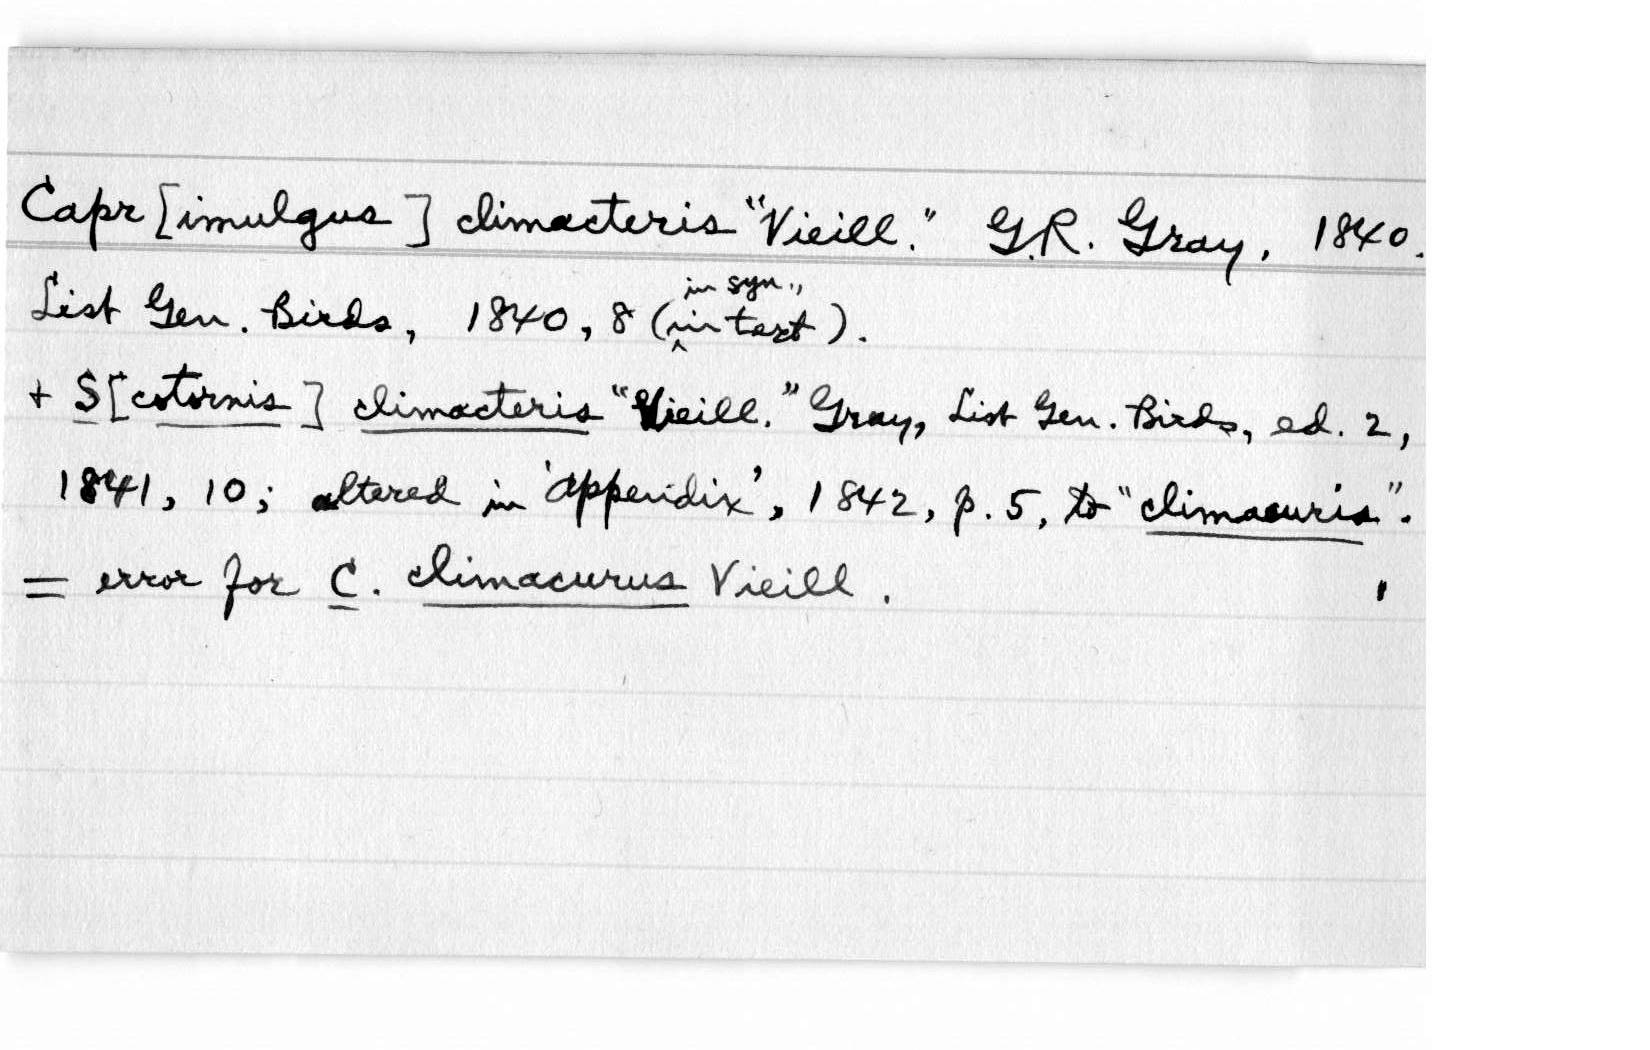 Capr[imulgus] climacteris "Vieill." G.R. Gray, 1840.
List Gen. Birds, 1840, 8 (in syn., in text).
+ S[cotornis] climacteris "Vieill." Gray, List Gen. Birds, ed. 2,
1841, 10; altered in 'Appendix', 1842, p. 5, to "climacuris".
= error for C. climacurus Vieill.